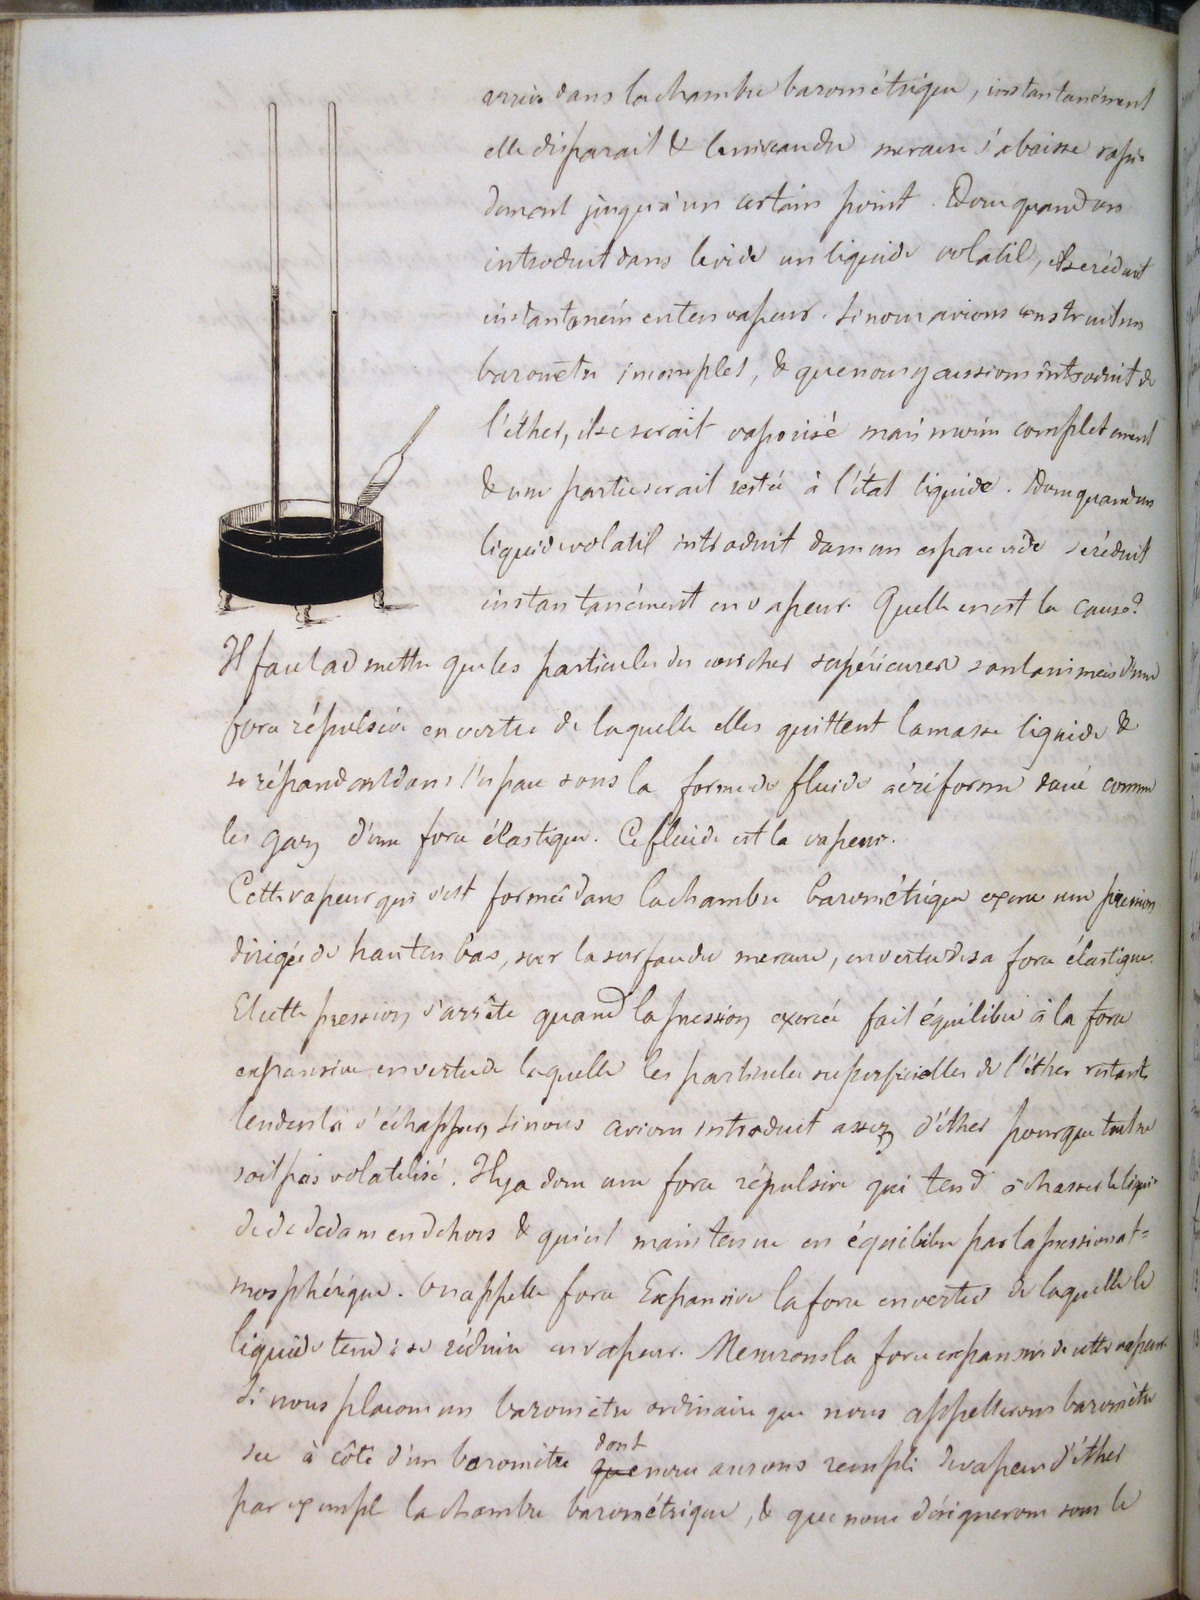 arrive dans la chambre barométrique, instantanément
elle disparait & le niveau du mercure s'abaisse rapi-
dement jusqu'à un certain point. Donc quand on
introduit dans le vide un liquide volatil, il se réduit
instantanément en vapeur. Si nous avions construit un
baromètre incomplet, & que nous y aussions introduit de
l'éther, il se serait vaporisé mais moins complètement
& une partie serait restée à l'état liquide. Donc quand un
liquide volatil introduit dans un espace vide se réduit
instantanément en vapeur. Quelle en est la cause?
Il faut admettre que les particules des couches supérieures sont animées d'une
force répulsive en vertu de laquelle elles quittent la masse liquide &
se répandent dans l'espace sous la forme de fluide aériforme doué comme
les gaz d'une force élastique. Ce fluide est la vapeur.
Cette vapeur qui s'est formée dans la chambre barométrique exerce une pression
dirigée de haut en bas, sur la surface du mercure, en vertu de sa force élastique.
Et cette pression s'arrête quand la pression exercée fait équilibre à la force
expansive en vertu de laquelle les particules superficielles de l'éther restant
tendent à s'échapper, si nous avions introduit assez d'éther pour que tout ne
soit pas volatilisé. Il y a donc une force répulsive qui tend à chasser le liqui-
de de dedans en dehors & qui est maintenue en équilibre par la pression at-
mosphérique. On appelle force Expansive la force en vertu de laquelle le
liquide tend à se réduire en vapeur. Mesurons la force expansive de cette vapeur.
Si nous plaçons un baromètre ordinaire que nous appellerons baromètre
sec à côté d'un baromètre que dont nous aurons rempli de vapeur d'éther
par exemple la chambre barométrique, & que nous désignerons sous le